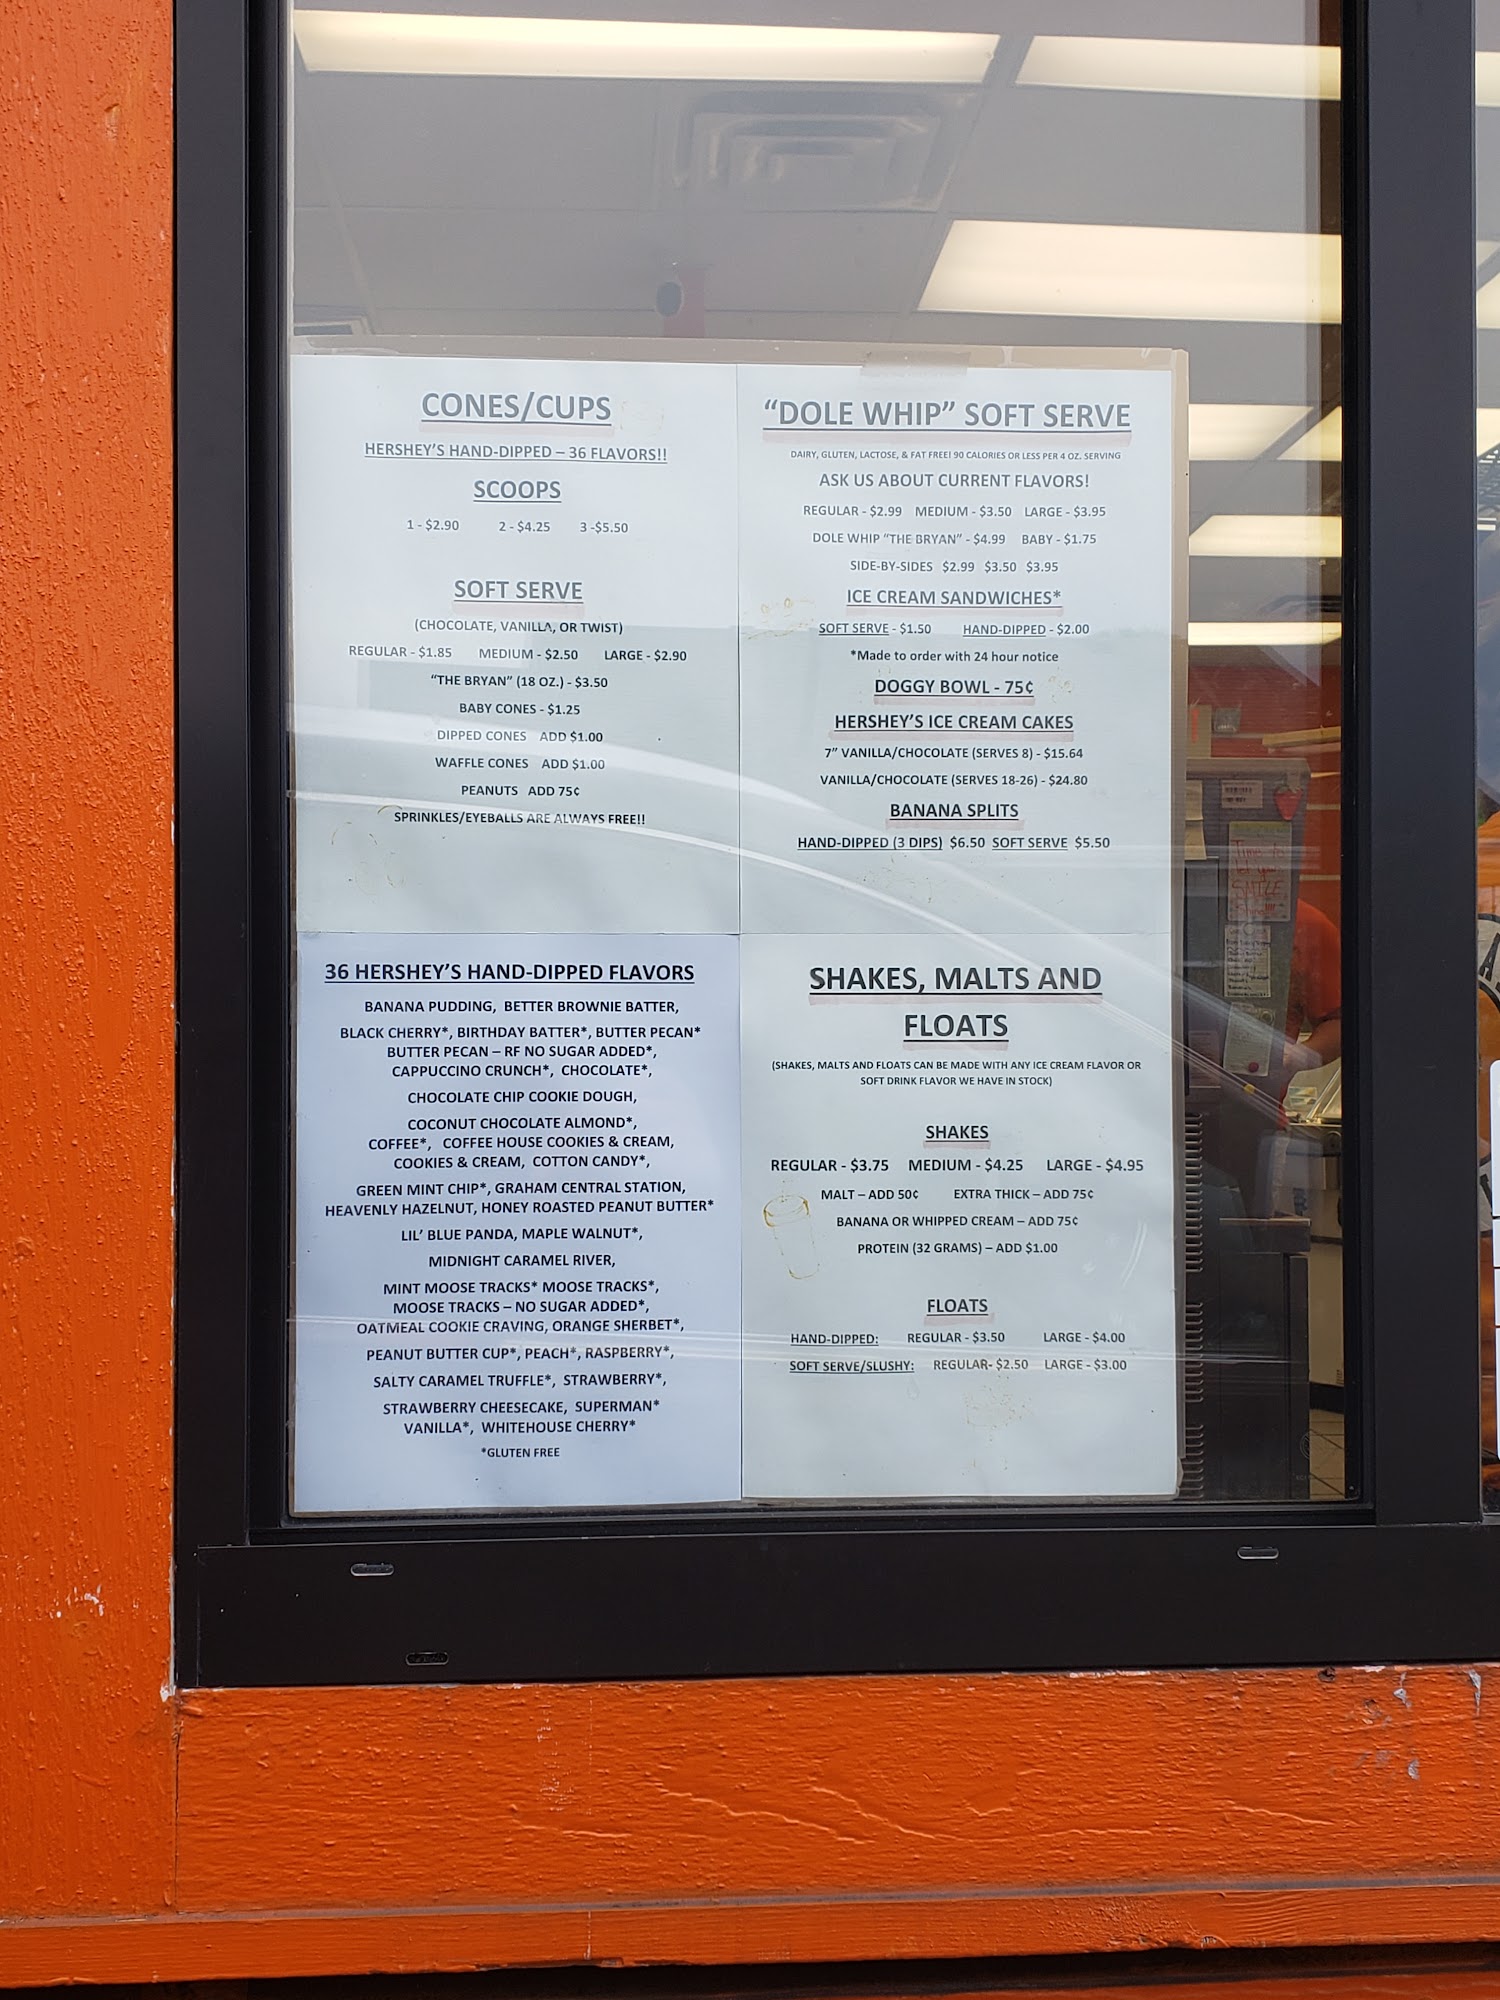 CONES/CUPS
HERSHEY'S HAND-DIPPED – 36 FLAVORS!!
SCOOPS
1 - $2.90 2 - $4.25 3 -$5.50
SOFT SERVE
(CHOCOLATE, VANILLA, OR TWIST)
REGULAR - $1.85 MEDIUM - $2.50 LARGE - $2.90
"THE BRYAN" (18 OZ.) - $3.50
BABY CONES - $1.25
DIPPED CONES ADD $1.00
WAFFLE CONES ADD $1.00
PEANUTS ADD 75¢
SPRINKLES/EYEBALLS ARE ALWAYS FREE!!
"DOLE WHIP" SOFT SERVE
DAIRY, GLUTEN, LACTOSE, & FAT FREE! 90 CALORIES OR LESS PER 4 OZ. SERVING
ASK US ABOUT CURRENT FLAVORS!
REGULAR - $2.99 MEDIUM - $3.50 LARGE - $3.95
DOLE WHIP "THE BRYAN" - $4.99 BABY - $1.75
SIDE-BY-SIDES $2.99 $3.50 $3.95
ICE CREAM SANDWICHES*
SOFT SERVE - $1.50 HAND-DIPPED - $2.00
*Made to order with 24 hour notice
DOGGY BOWL - 75¢
HERSHEY'S ICE CREAM CAKES
7" VANILLA/CHOCOLATE (SERVES 8) - $15.64
VANILLA/CHOCOLATE (SERVES 18-26) - $24.80
BANANA SPLITS
HAND-DIPPED (3 DIPS) $6.50 SOFT SERVE $5.50
36 HERSHEY'S HAND-DIPPED FLAVORS
BANANA PUDDING, BETTER BROWNIE BATTER,
BLACK CHERRY*, BIRTHDAY BATTER*, BUTTER PECAN*
BUTTER PECAN – RF NO SUGAR ADDED*,
CAPPUCCINO CRUNCH*, CHOCOLATE*,
CHOCOLATE CHIP COOKIE DOUGH,
COCONUT CHOCOLATE ALMOND*,
COFFEE*, COFFEE HOUSE COOKIES & CREAM,
COOKIES & CREAM, COTTON CANDY*,
GREEN MINT CHIP*, GRAHAM CENTRAL STATION,
HEAVENLY HAZELNUT, HONEY ROASTED PEANUT BUTTER*
LIL' BLUE PANDA, MAPLE WALNUT*,
MIDNIGHT CARAMEL RIVER,
MINT MOOSE TRACKS* MOOSE TRACKS*,
MOOSE TRACKS – NO SUGAR ADDED*,
OATMEAL COOKIE CRAVING, ORANGE SHERBET*,
PEANUT BUTTER CUP*, PEACH*, RASPBERRY*,
SALTY CARAMEL TRUFFLE*, STRAWBERRY*,
STRAWBERRY CHEESECAKE, SUPERMAN*
VANILLA*, WHITEHOUSE CHERRY*
*GLUTEN FREE
SHAKES, MALTS AND
FLOATS
(SHAKES, MALTS AND FLOATS CAN BE MADE WITH ANY ICE CREAM FLAVOR OR
SOFT DRINK FLAVOR WE HAVE IN STOCK)
SHAKES
REGULAR - $3.75 MEDIUM - $4.25 LARGE - $4.95
MALT – ADD 50¢ EXTRA THICK – ADD 75¢
BANANA OR WHIPPED CREAM – ADD 75¢
PROTEIN (32 GRAMS) – ADD $1.00
FLOATS
HAND-DIPPED: REGULAR - $3.50 LARGE - $4.00
SOFT SERVE/SLUSHY: REGULAR- $2.50 LARGE - $3.00